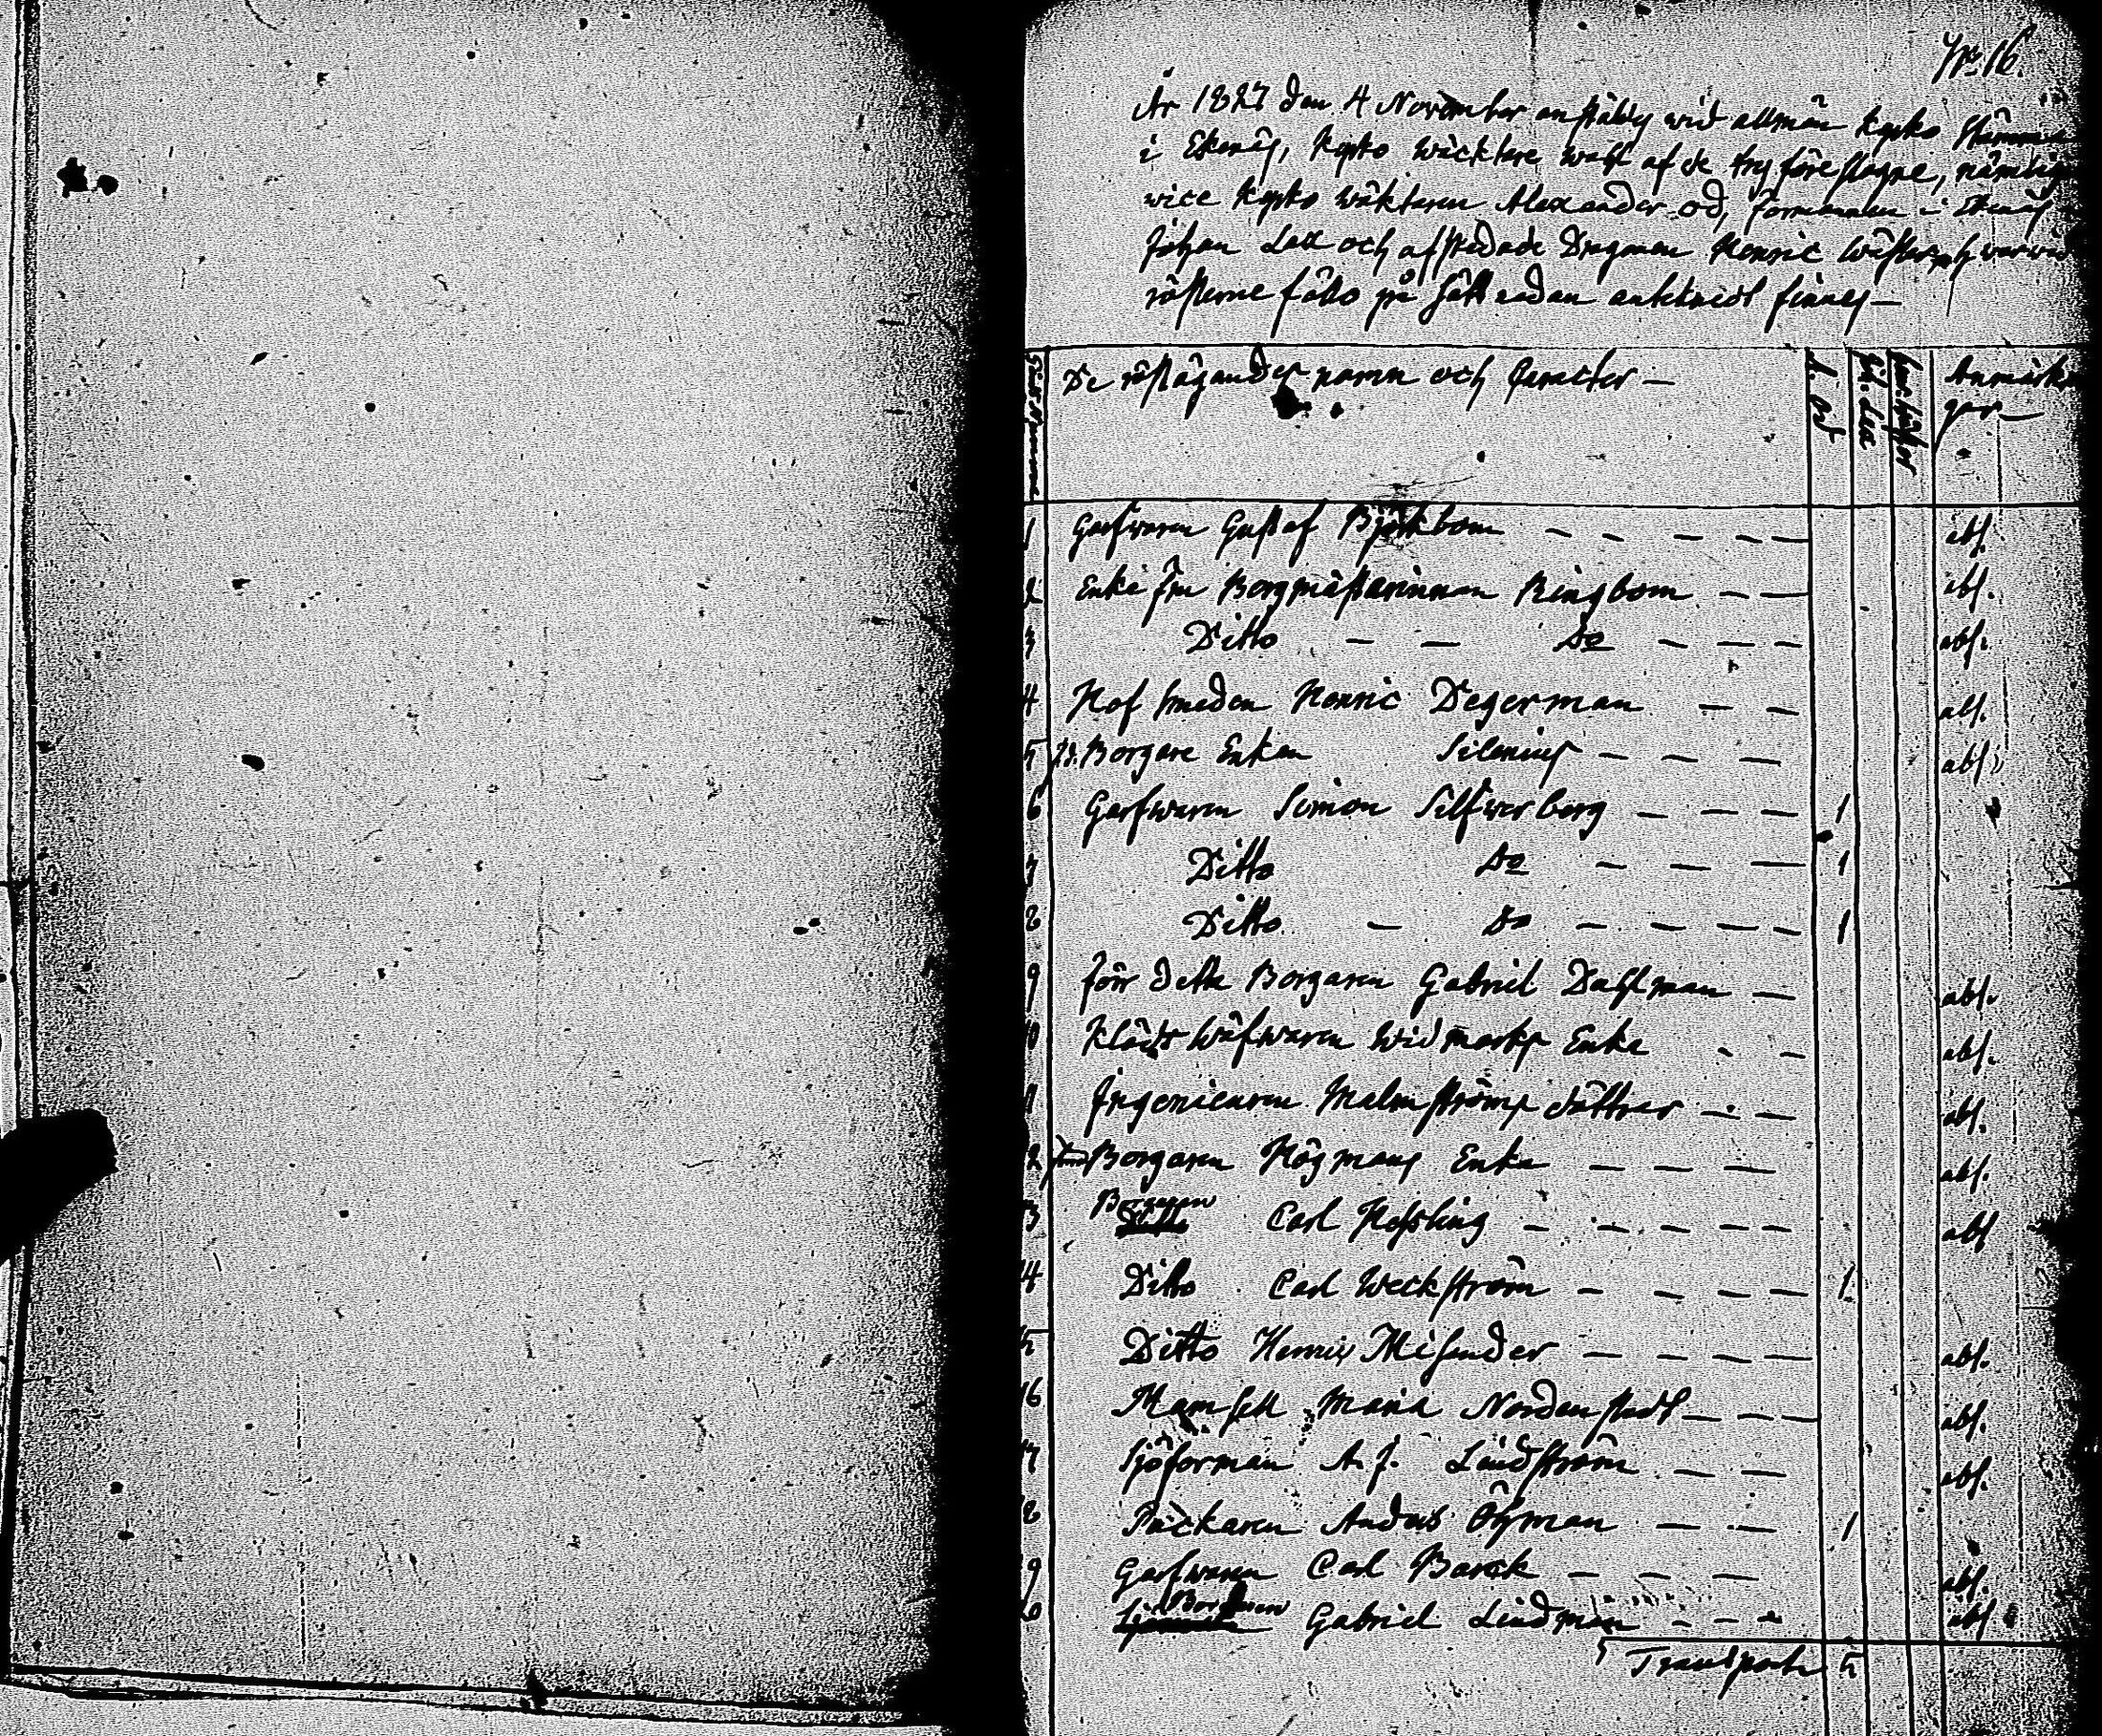 No 16.
År 1827 den 4 November anstäldes wid allmän kyrko Stämma
i Ekenäs, kyrko wäcktare wahl af de try föreslagne, nämligen
vice kyrko wäktaren Alexander Öd, förmannen i Ekenäs
Johan Lax och afskedade Dragonen Henric hwarwid
rösterne föllo på sätt nedan antecknadt finnes —
De röstägandes namn och Caracter —
A. Öd
Joh. Lax
Anmärknin
gar —
1 Garfwaren Gustaf Björkbom — — — — — abs.
2 Enke fru Borgmästarinnan Ringbom — — abs.
3 Ditto — — Do — — — abs.
4 Hofsmeden Henric Degerman — — abs.
5 Borgare Enkan Silenius — — — abs.
6 Garfwaren Simon Silfwerberg — — — 1
7 Ditto Do — — — 1
8 Ditto — Do — — — — 1
9 förr detta Borgaren Gabriel Dahlman — abs.
10 Klädswäfwaren Widmarks Enka - - abs.
11 Ingenieuren Malmströms döttrar — — abs.
12 Borgaren Högmans Enka — — — abs.
13 Borgaren Ditto Carl Hessling — — — — — abs
14 Ditto Carl Weckström — — — — 1
15 Ditto Henric Misender — — — — abs.
16 Mamsell Maria Nordenstedt — — — abs.
17 Sjöforman A. J. Lindström — — abs.
18 Packaren Anders Öhman — — — 1
19 Garfwaren Carl Barck — — — abs.
20 Borgaren Gabriel Lindman — — — abs
Transport 5